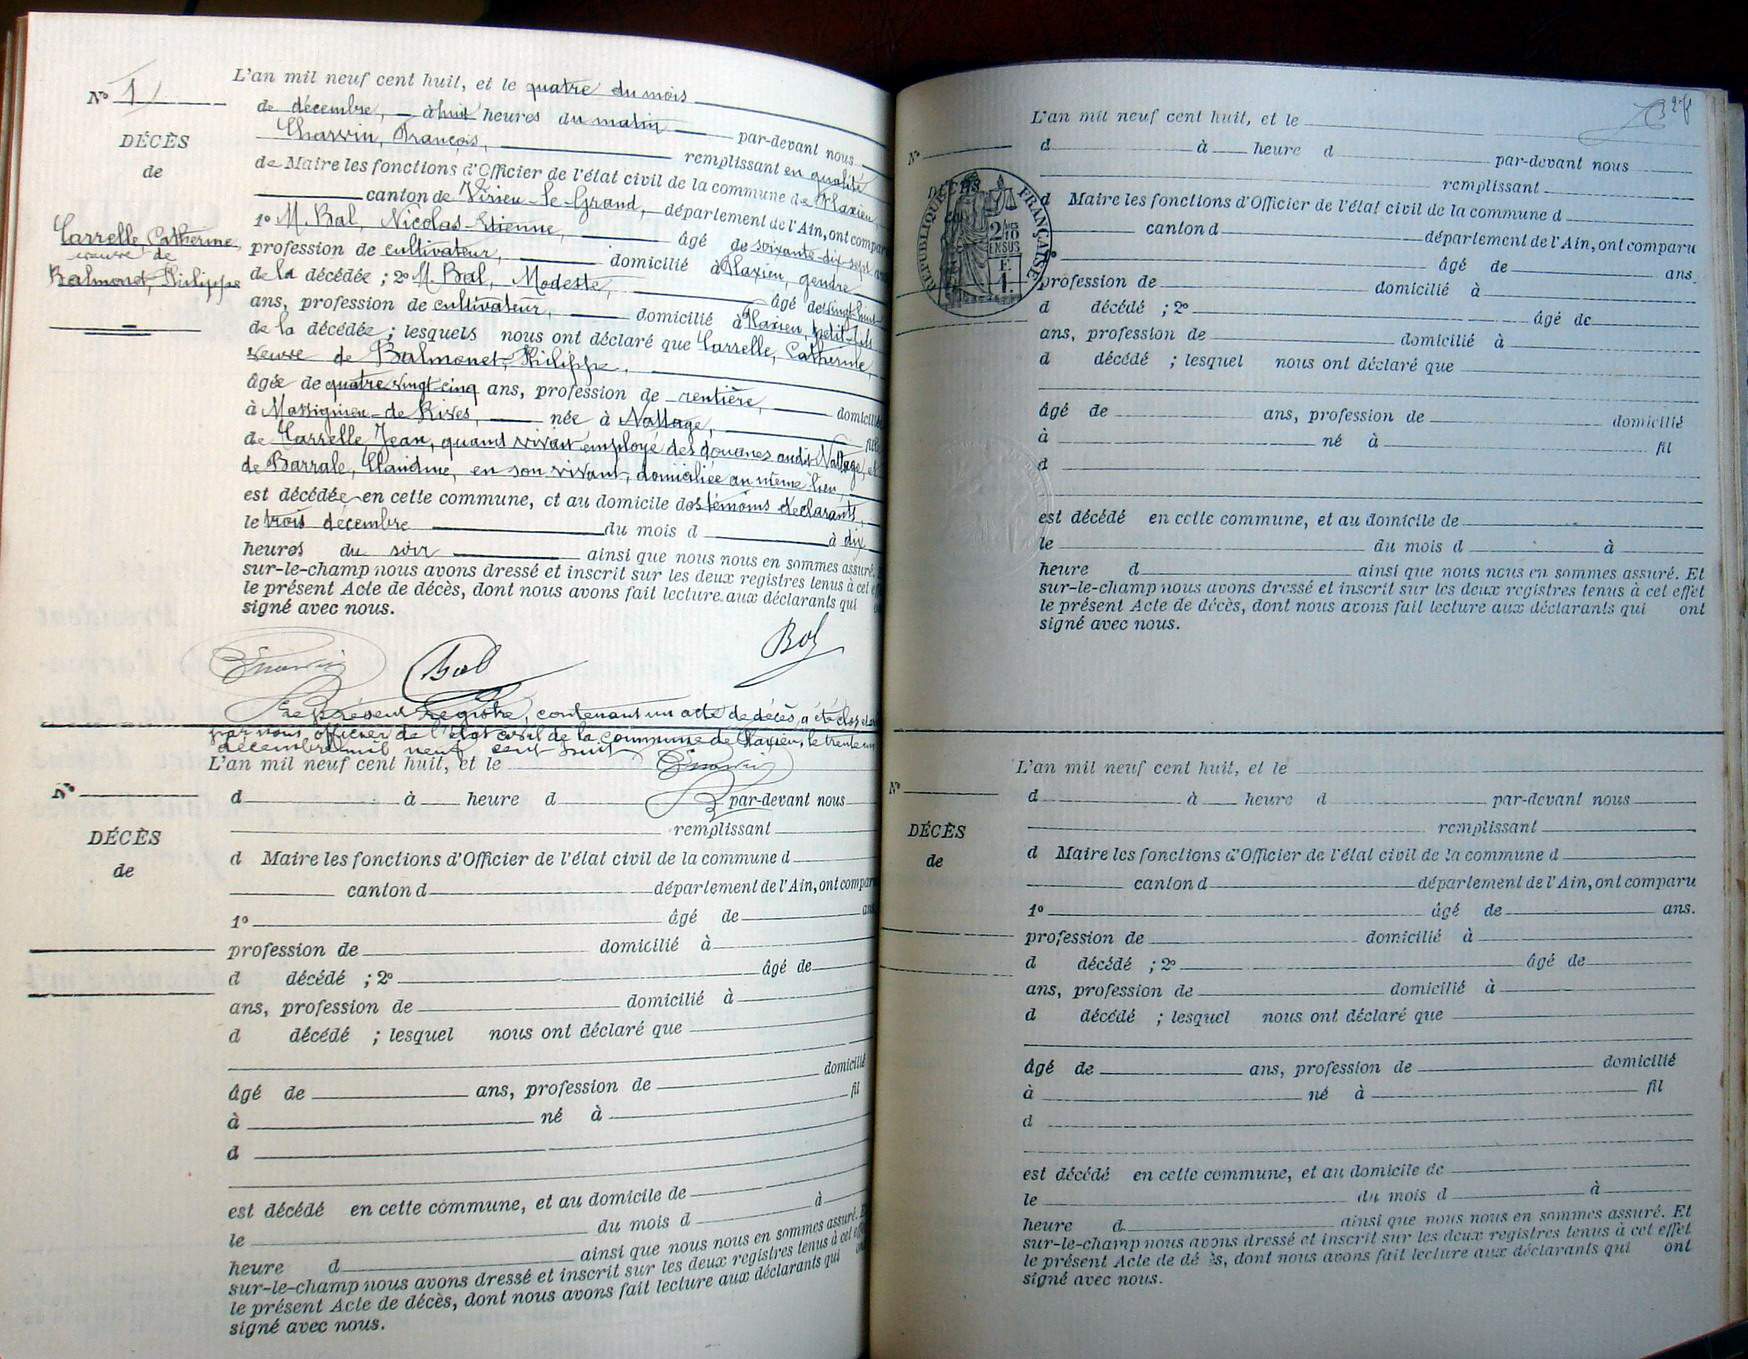 L'an mil neuf cent huit, et le quatre du mois
N° 1
de décembre, à huit heures du matin par-devant nous
Charvin, François, remplissant en qualité
DÉCÈS
de
de Maire les fonctions d'Officier de l'état civil de la commune de Flaxieu,
canton de Virieu-le-Grand, département de l'Ain, ont comparu
Carrelle, Catherine,
veuve de
Balmonet, Philippe
1° M. Bal, Nicolas-Etienne, âgé de soixante-dix-sept ans
profession de cultivateur, domicilié à Flaxieu, gendre
de la décédée ; 2° M. Bal, Modeste, âgé de vingt-huit
ans, profession de cultivateur, domicilié à Flaxieu, petit-fils
de la décédée ; lesquels nous ont déclaré que Carrelle, Catherine,
veuve de Balmonet, Philippe,
âgée de quatre vingt cinq ans, profession de rentière, domicilié
à Massignieu-de-Rives, née à Nattage, fille
de Carrelle Jean, quand vivait employé des douanes audit Nattage, et
de Barrale, Claudine, en son vivant, domiciliée au même lieu,
est décédée en cette commune, et au domicile des témoins déclarants,
le trois décembre du mois d à dix
heures du soir ainsi que nous nous en sommes assuré. E
sur-le-champ nous avons dressé et inscrit sur les deux registres tenus à cet eff
le présent Acte de décès, dont nous avons fait lecture aux déclarants qui o
signé avec nous.
Charvin Bal Bal
Le présent registre, contenant un acte de décès, a été clos et
par nous, officier de l'état civil de la commune de Flaxieu, le trente un
décembre mil neuf cent huit
Charvin
L'an mil neuf cent huit, et le
N°
d à heure d par-devant nous
remplissant
DÉCÈS
de
d Maire les fonctions d'Officier de l'état civil de la commune d
canton d département de l'Ain, ont comparu
1° âgé de ans
profession de domicilié à
d décédé ; 2° âgé de
ans, profession de domicilié à
d décédé ; lesquel nous ont déclaré que
âgé de ans, profession de domicilié
à né à fil
d
est décédé en cette commune, et au domicile de
le du mois d à
heure d ainsi que nous nous en sommes assuré. E
sur-le-champ nous avons dressé et inscrit sur les deux registres tenus à cet eff
le présent Acte de décès, dont nous avons fait lecture aux déclarants qui on
signé avec nous.
L'an mil neuf cent huit, et le
N°
d à heure d par-devant nous
remplissant
DÉCÈS
RÉPUBLIQUE FRANÇAISE
2/10
EN SUS
F.
1.
d Maire les fonctions d'Officier de l'état civil de la commune d
canton d département de l'Ain, ont comparu
âgé de ans
profession de domicilié à
d décédé ; 2° âgé de
ans, profession de domicilié à
d décédé ; lesquel nous ont déclaré que
âgé de ans, profession de domicilié
à né à fil
d
est décédé en cette commune, et au domicile de
le du mois d à
heure d ainsi que nous nous en sommes assuré. Et
sur-le-champ nous avons dressé et inscrit sur les deux registres tenus à cet effet
le présent Acte de décès, dont nous avons fait lecture aux déclarants qui ont
signé avec nous.
L'an mil neuf cent huit, et le
N°
d à heure d par-devant nous
remplissant
DÉCÈS
de
d Maire les fonctions d'Officier de l'état civil de la commune d
canton d département de l'Ain, ont comparu
1° âgé de ans.
profession de domicilié à
d décédé ; 2° âgé de
ans, profession de domicilié à
d décédé ; lesquel nous ont déclaré que
âgé de ans, profession de domicilié
à né à fil
d
est décédé en cette commune, et au domicile de
le du mois d à
heure d ainsi que nous nous en sommes assuré. Et
sur-le-champ nous avons dressé et inscrit sur les deux registres tenus à cet effet
le présent Acte de dé ès, dont nous avons fait lecture aux déclarants qui ont
signé avec nous.